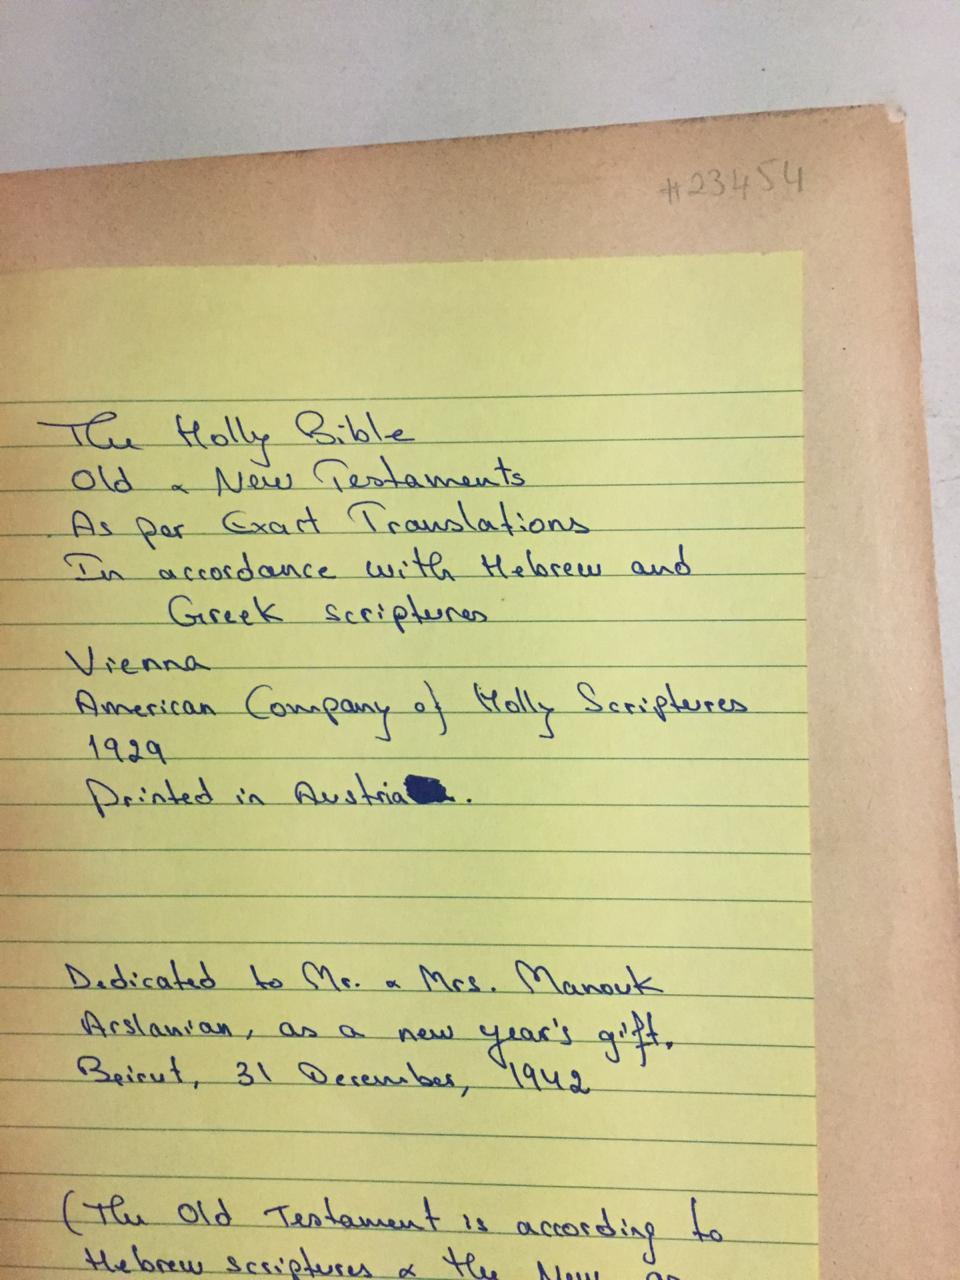 #23454
The Holly Bible
Old & New Testaments
As per Exact Translations
In accordance with Hebrew and
Greek scriptures
Vienna
American Company of Holly Scriptures
1929
Printed in Austria.
Dedicated to Mr. & Mrs. Manouk
Arslanian, as a new year's gift.
Beirut, 31 December, 1942
(The Old Testament is according to
Hebrew scriptures & the New